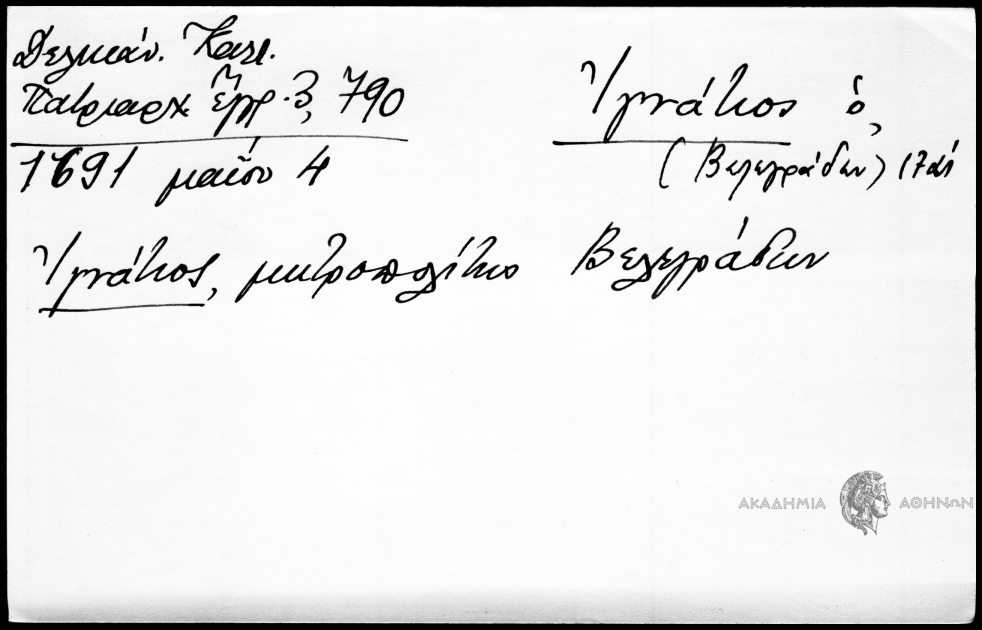 Δελικάν. Καλλ.
Πατριαρχ. ἔγγρ. 3, 790
1691 μαΐου 4
Ἰγνάτιος ὁ,
(Βελεγράδων) 17 αἰ
Ἰγνάτιος, μητροπολίτης Βελεγράδων
ΑΚΑΔΗΜΙΑ ΑΘΗΝΩΝ